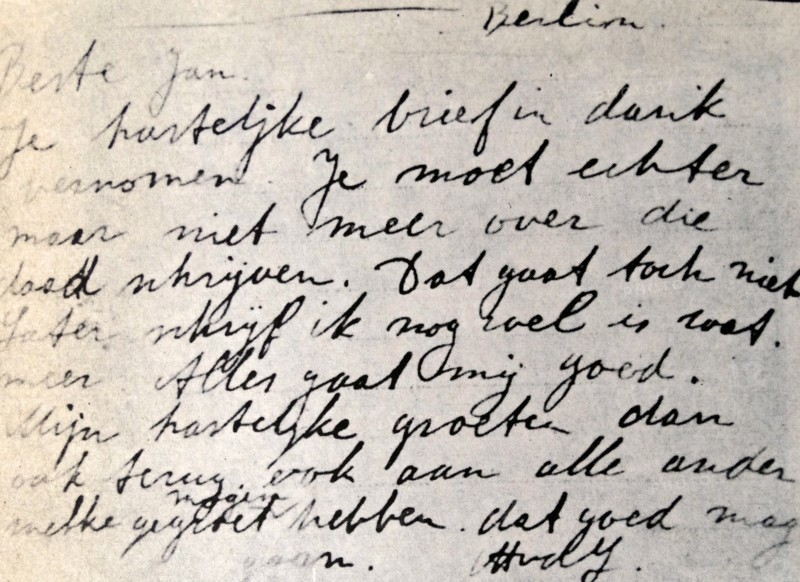 Berlin.
Beste Jan.
Je hartelijke brief in dank
vernomen. Je moet echter
maar niet meer over die
daad schrijven. Dat gaat toch niet
Later schrijf ik nog wel is wat.
meer Alles gaat mij goed.
Mijn hartelijke groeten dan
ook terug. ook aan alle ander
welke mogen gegroet hebben. dat goed mag
gaan.